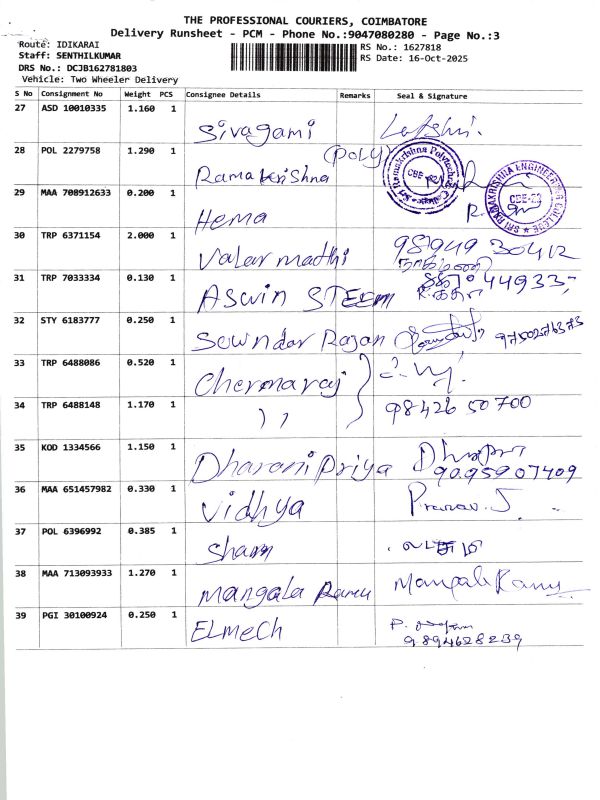 THE PROFESSIONAL COURIERS, COIMBATORE
Delivery Runsheet - PCM - Phone No.:9047080280 - Page No.:3
Route: IDIKARAI
RS No.: 1627818
Staff: SENTHILKUMAR
RS Date: 16-Oct-2025
DRS No.: DCJB162781803
Vehicle: Two Wheeler Delivery
S No Consignment No Weight PCS Consignee Details Remarks Seal & Signature
27 ASD 10010335 1.160 1
Sivagami
28 POL 2279758 1.290 1
(Poly)
Ramakrishna
Sri Ramakrishna Polytechnic College
CBE-22
29 MAA 708912633 0.200 1
Hema
SRI RAMAKRISHNA ENGINEERING COLLEGE
CBE-22
30 TRP 6371154 2.000 1
Valarmadhi
98949 30412
31 TRP 7033334 0.130 1
Aswin STEEM
44933
32 STY 6183777 0.250 1
Sowndar Rajan
9750276373
33 TRP 6488086 0.520 1
Chennaraj
34 TRP 6488148 1.170 1
98426 50700
35 KOD 1334566 1.150 1
Dharani Priya
9095907409
36 MAA 651457982 0.330 1
Vidhya Pranav. J.
37 POL 6396992 0.385 1
Sham
38 MAA 713093933 1.270 1
Mangala Ramu
39 PGI 30100924 0.250 1
ELMECH
9894628239